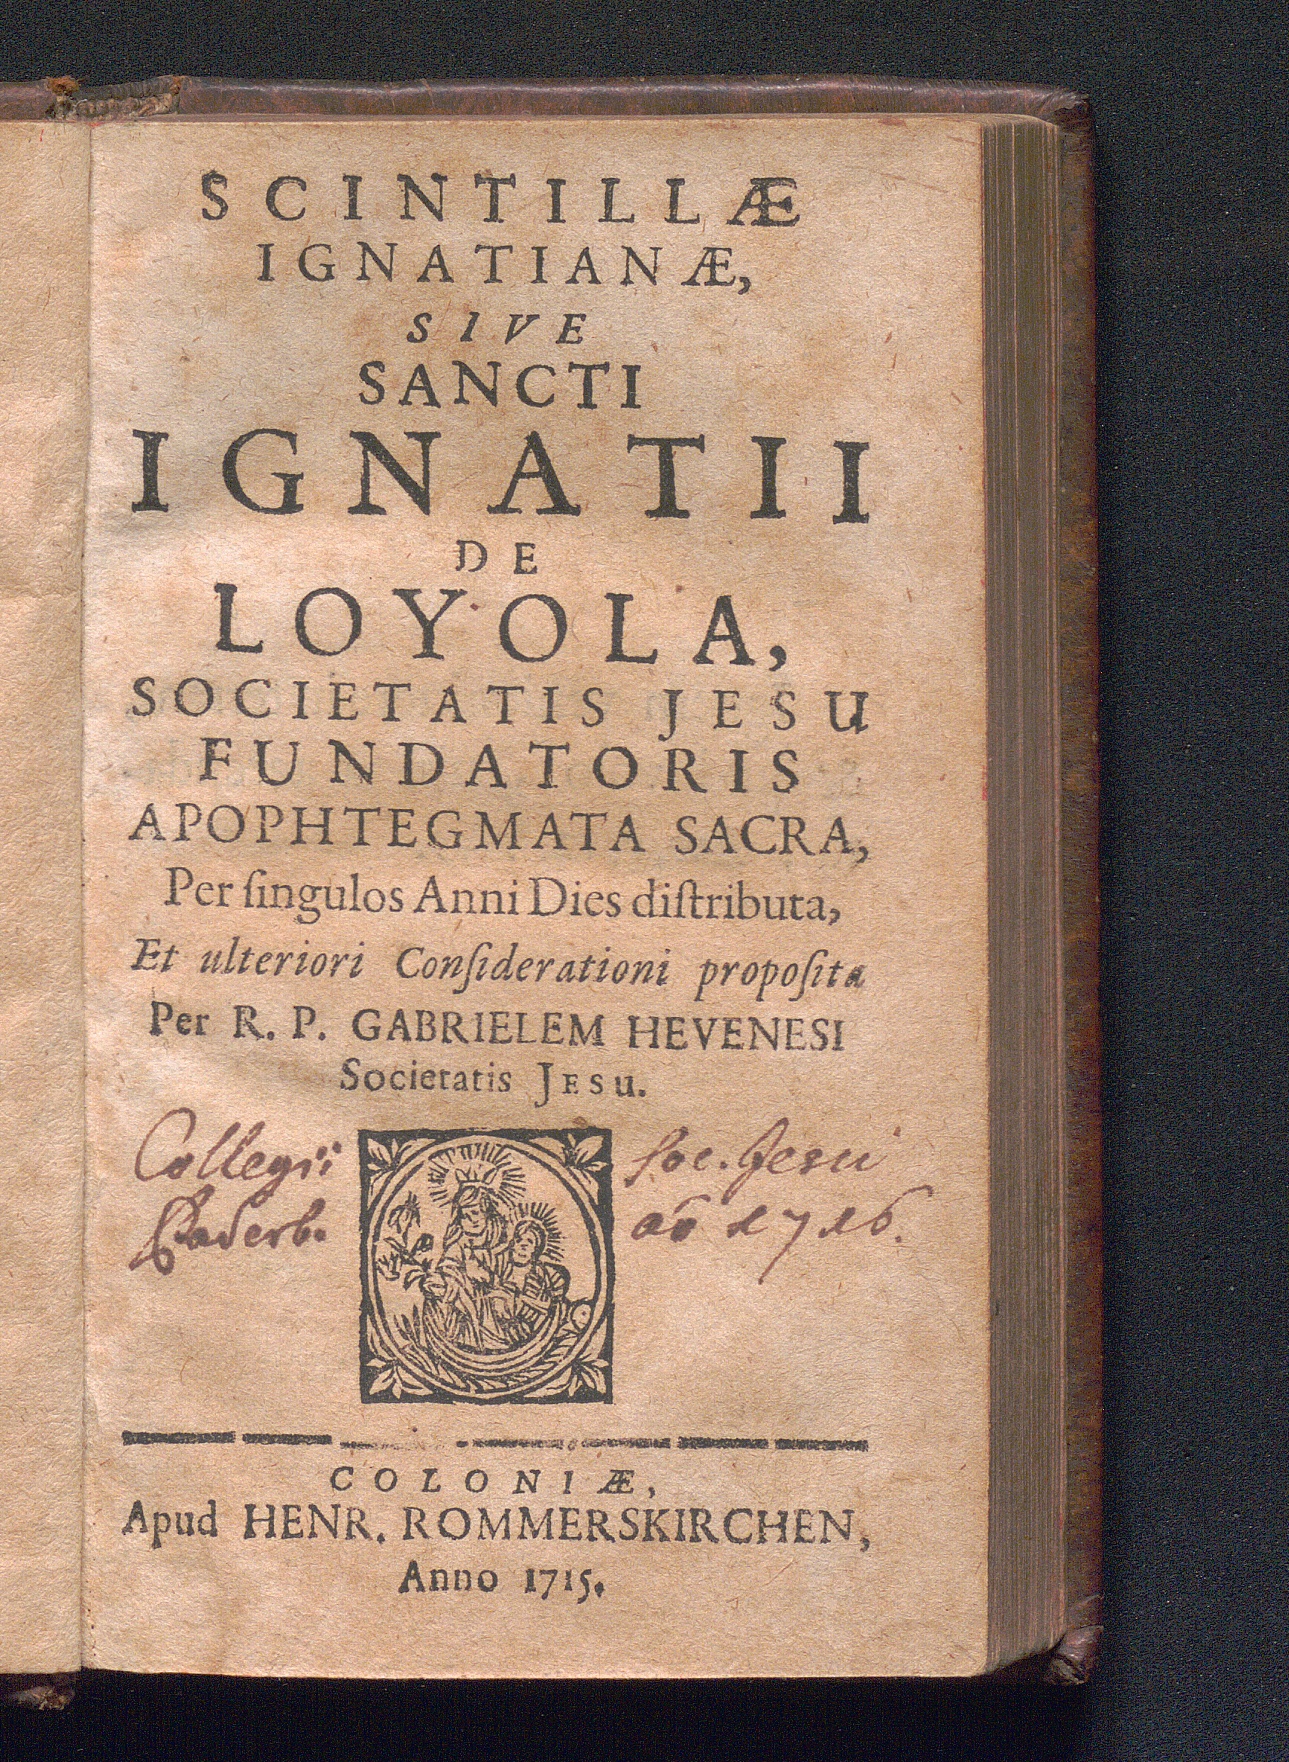 SCINTILLÆ
IGNATIANÆ,
SIVE
SANCTI
IGNATII
DE
LOYOLA,
SOCIETATIS JESU
FUNDATORIS
APOPHTEGMATA SACRA,
Per ſingulos Anni Dies diſtributa,
Et ulteriori Conſiderationi propoſita
Per R. P. GABRIELEM HEVENESI
Societatis JESU.
Collegii Soc. Jesu
Paderb. aõ 1716.
COLONIÆ,
Apud HENR. ROMMERSKIRCHEN,
Anno 1715.